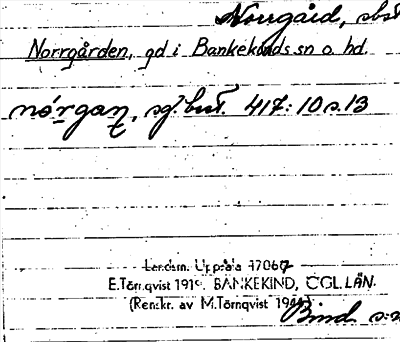 Norrgård, sbst
Norrgården, gd i Bankekinds sn o. hd.
nórgaṇ, sg. best. 417: 10 s. 13
Landsm. Uppsala 17067
E. Törnqvist 1919. BANKEKIND, ÖGL. LÄN.
(Renskr. av M. Törnqvist 1944)
Bind s:n